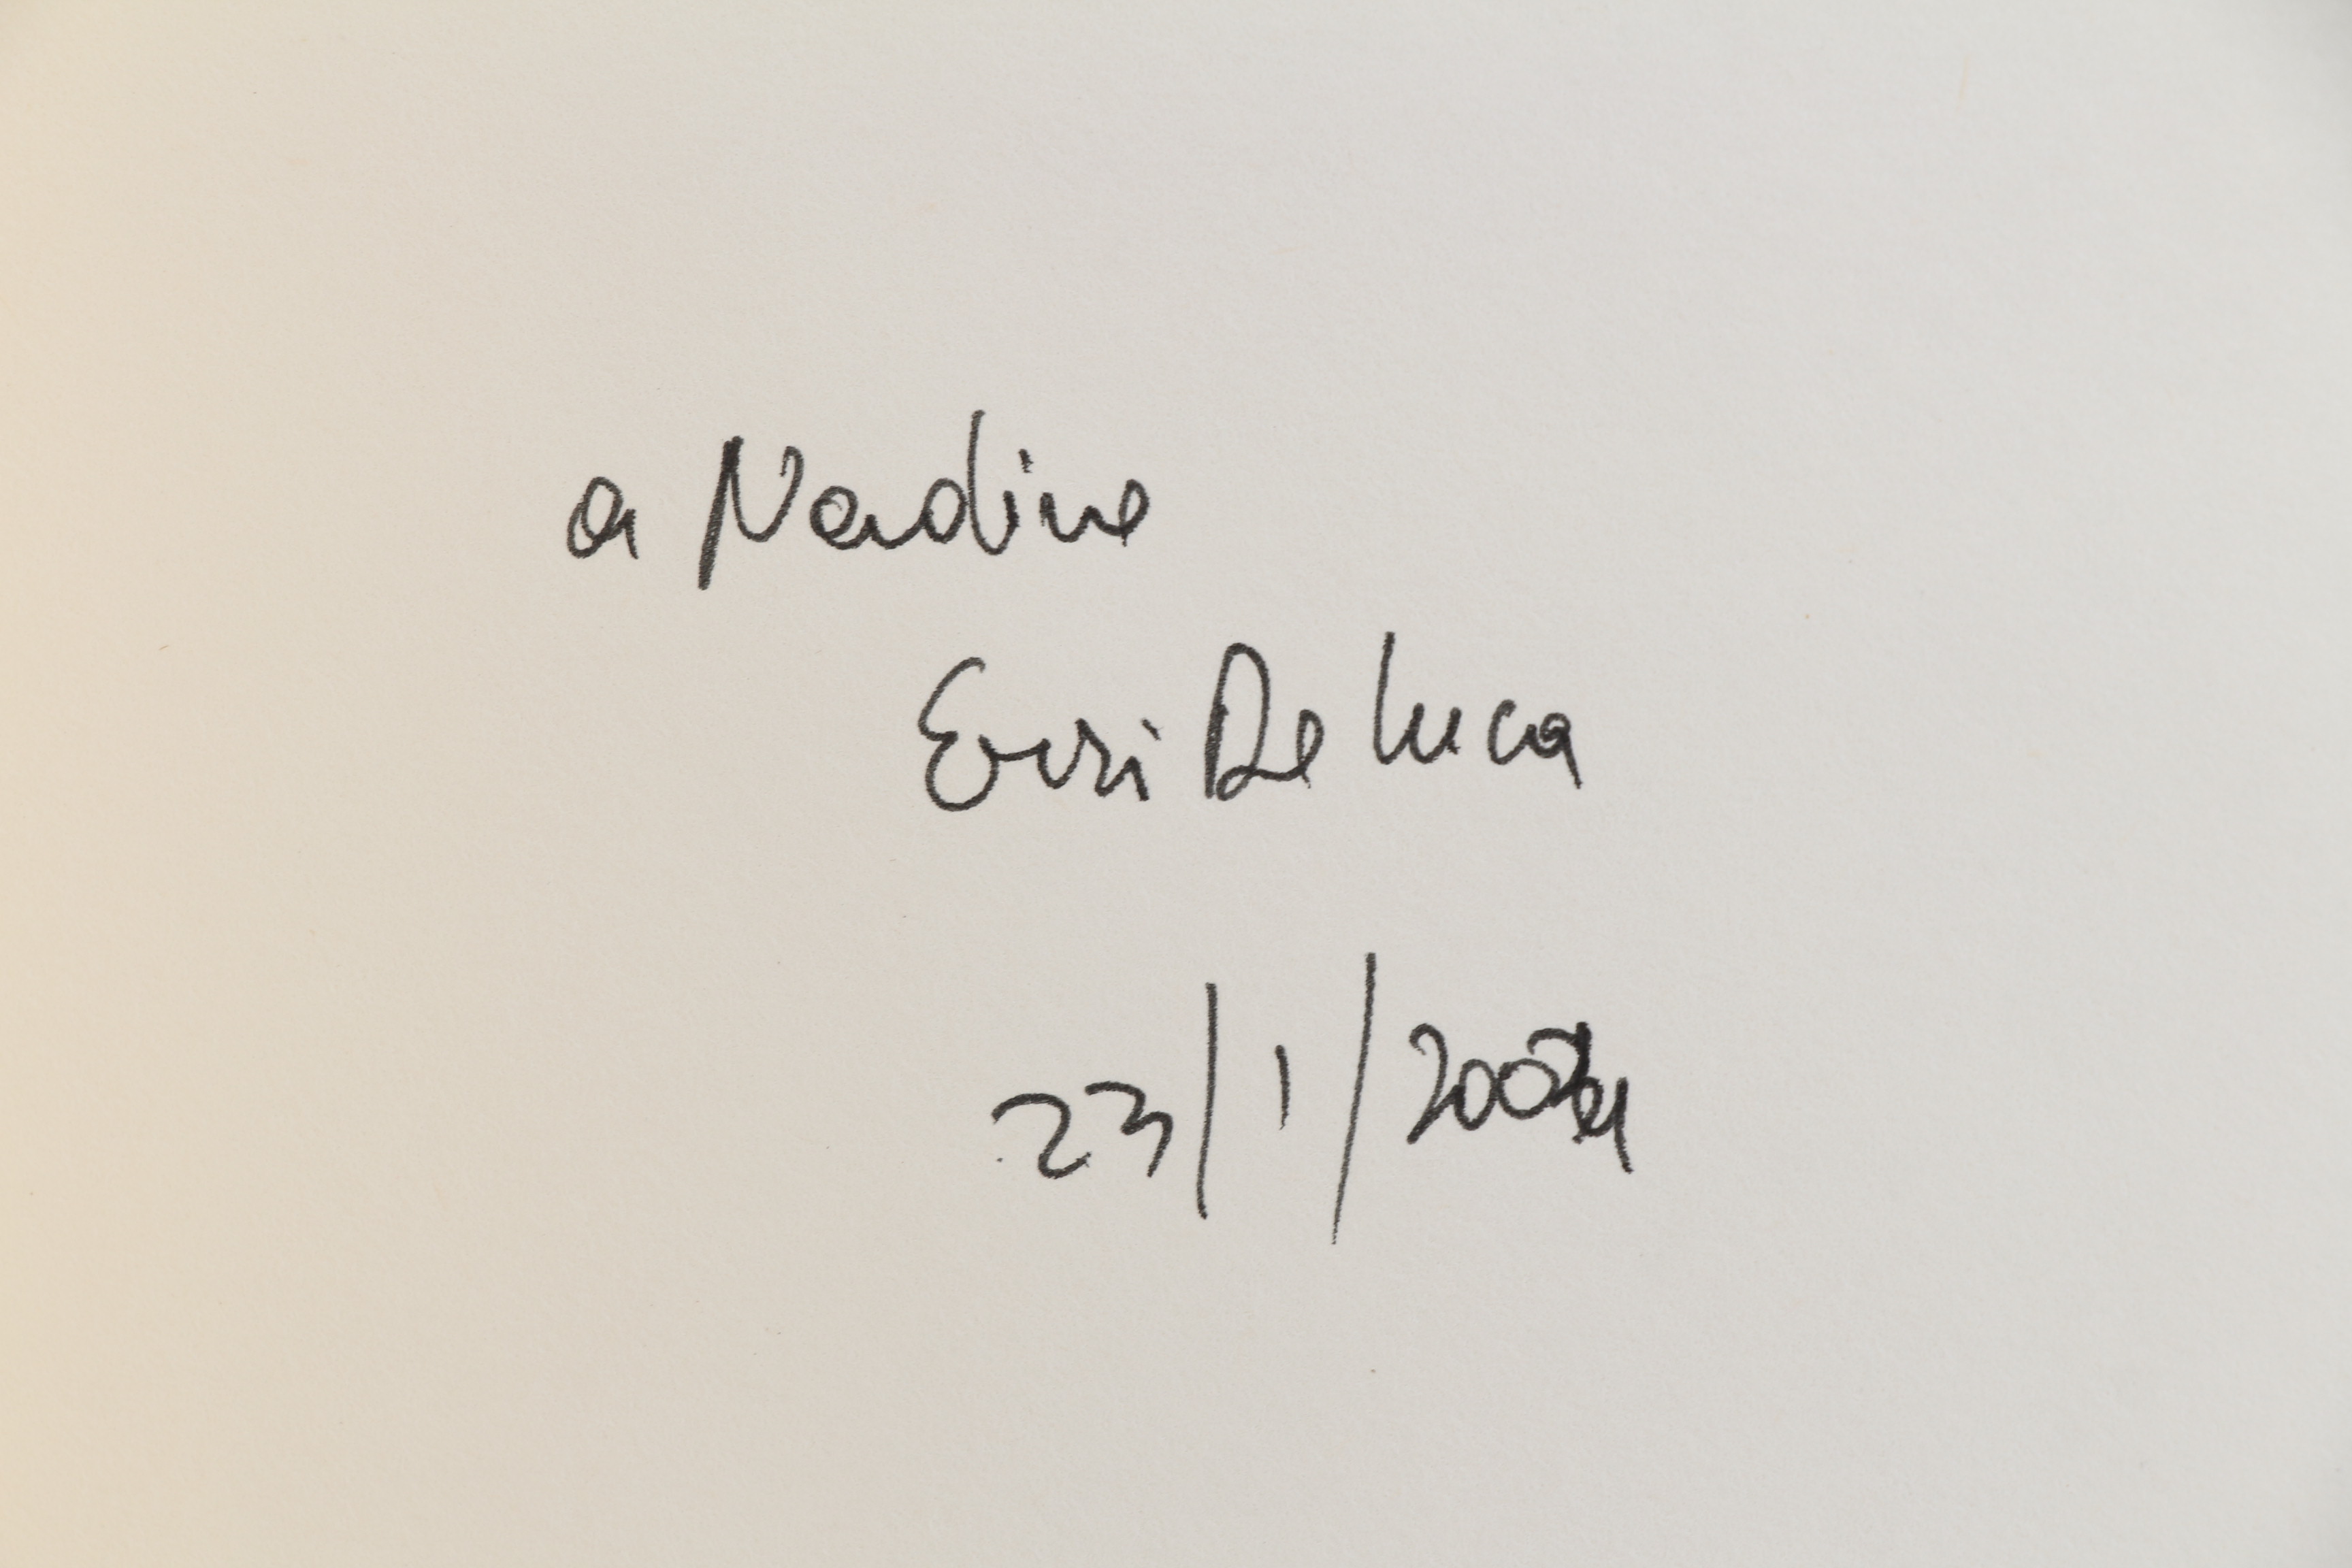 a Nadine
Erri De Luca
23/1/2004